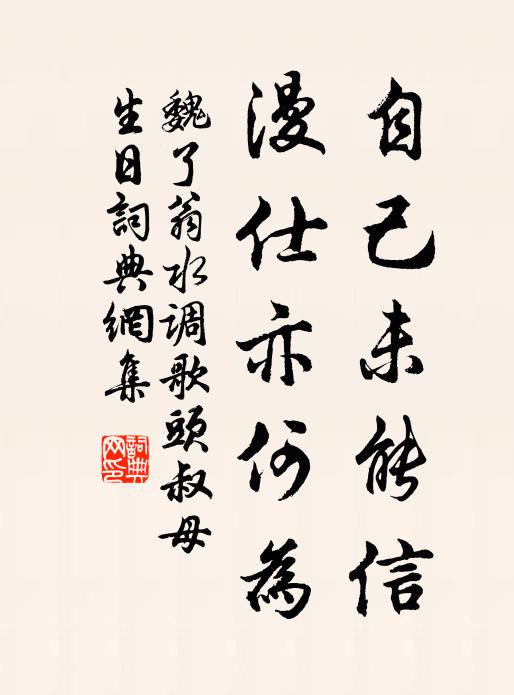 自己未能信
漫仕亦何為
魏了翁水调歌頭叔母
生日詞典網集
詞典
网印